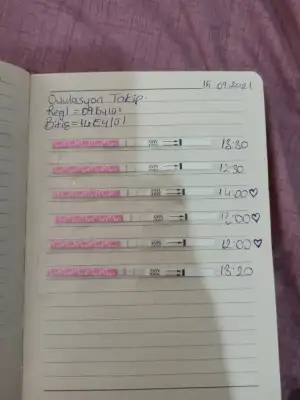 15.09.2021
Ovulasyon Takip.
Regl = 09Eylül
Bitiş = 14Eylül
13:30
12:30
14:00♡
12:00♡
12:00♡
13:20